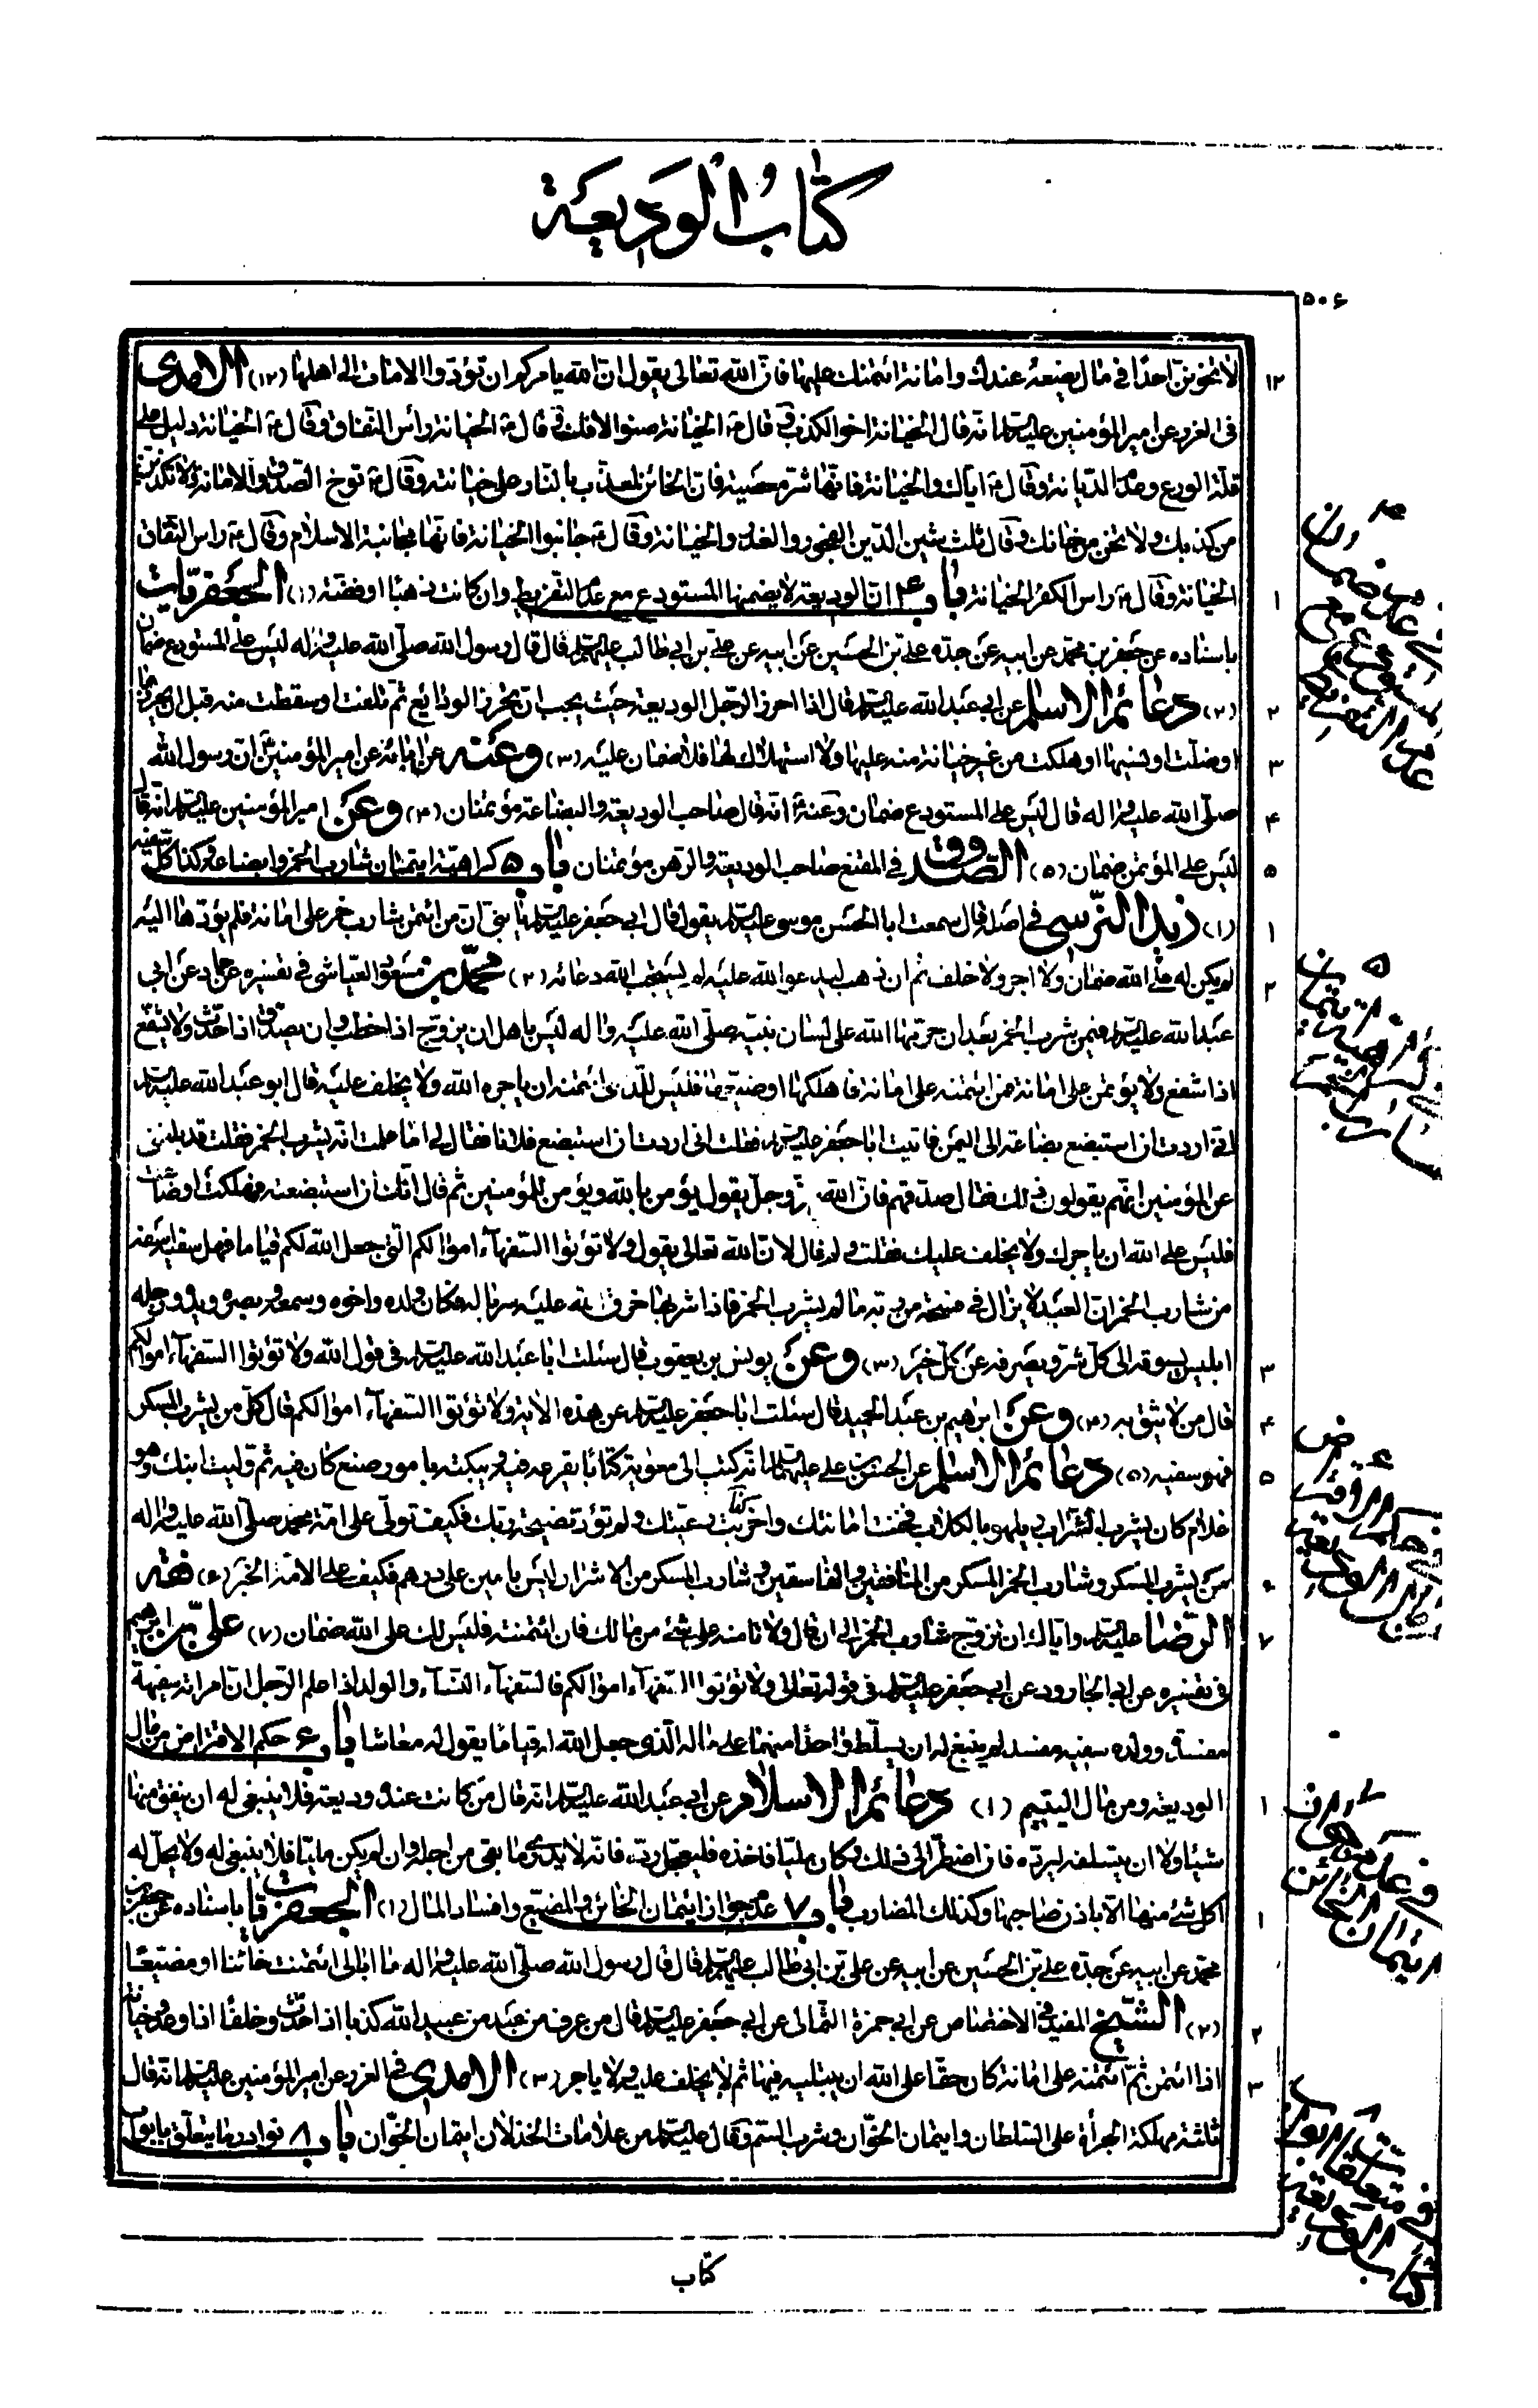 كتاب الوديعة
٥٠٦
لا تخونن احدا في مال يضعه عندك وامانة ائتمنك عليها فان الله تعالى يقول ان الله يامركم ان تؤدوا الامانات الى اهلها (١٢) الامدى
١٢
فى الغرر عن امير المؤمنين عليه السلام انه قال الخيانة اخو الكذب وقال ع الخيانة صنو الافك وقال ع الخيانة راس النفاق وقال ع الخيانة دليل على
قلة الورع وعدم الديانة وقال ع اياك والخيانة فانها شر معصية فان الخائن لمعذب بالنار على خيانته وقال ع توخ الصدق والامانة ولا تكذب
من كذبك ولا تخن من خانك وقال ثلث يشين الدين الفجور والغدر والخيانة وقال ع جانبوا الخيانة فانها مجانبة الاسلام وقال ع راس النفاق
الخيانة وقال ع راس الكفر الخيانة باب ٤ ان الوديعة لا يضمنها المستودع مع عدم التفريط وان كانت ذهبا او فضة (١) الجعفريات
١
باسناده عن جعفر بن محمد عن ابيه عن جده على بن الحسين عن ابيه عن على بن ابى طالب عليهم السلام قال قال رسول الله صلى الله عليه واله ليس على المستودع ضمان
(٢) دعائم الاسلام عن ابى عبد الله عليه السلام قال اذا احرز الرجل الوديعة حيث يجب ان تحرز الودائع ثم تلفت او سقطت منه قبل ان يحرزها
٢
او ضلت او نسيها او هلكت من غير خيانة منه عليها ولا استهلاك لها فلا ضمان عليه (٣) وعنه عن ابائه عن امير المؤمنين ان رسول الله
٣
صلى الله عليه واله قال ليس على المستودع ضمان وعنه انه قال صاحب الوديعة والبضاعة مؤتمنان (٤) وعن امير المؤمنين عليه السلام انه قال
٤
ليس على المؤتمن ضمان (٥) الصدوق فى المقنع صاحب الوديعة والرهن مؤتمنان باب ٥ كراهية ايتمان شارب الخمر وابضاعه وكذا كل سفيه
٥
(١) زيد النرسى فى اصله قال سمعت ابا الحسن موسى عليه السلام يقول قال ابى جعفر عليه السلام يا بنى ان من ائتمن شارب خمر على امانة فلم يؤدها اليه
١
لم يكن له على الله ضمان ولا اجر ولا خلف ثم ان ذهب ليدعو الله عليه لم يستجب الله دعائه (٢) محمد بن مسعود العياشى فى تفسيره عن حماد عن ابى
٢
عبد الله عليه السلام فيمن شرب الخمر بعد ان حرمها الله على لسان نبيه صلى الله عليه واله ليس باهل ان يزوج اذا خطب وان يصدق اذا حدث ولا يشفع
اذا شفع ولا يؤتمن على امانة فمن ائتمنه على امانة فاهلكها او ضيعها فليس للذى ائتمنه ان ياجره الله ولا يخلف عليه قال ابو عبد الله عليه السلام
انى اردت ان استبضع بضاعة الى اليمن فاتيت ابا جعفر عليه السلام فقلت انى اردت ان استبضع فلانا فقال لى اما علمت انه يشرب الخمر فقلت قد بلغنى
عن المؤمنين انهم يقولون ذلك فقال صدقهم فان الله عز وجل يقول يؤمن بالله ويؤمن للمؤمنين ثم قال انك ان استبضعته فهلكت او ضاعت
فليس على الله ان ياجرك ولا يخلف عليك فقلت ولم قال لان الله تعالى يقول ولا تؤتوا السفهاء اموالكم التى جعل الله لكم قياما فهل سفيه اسفه
من شارب الخمر ان العبد لا يزال فى فسحة من ربه ما لم يشرب الخمر فاذا شربها خرق الله عليه سرباله فكان ولده واخوه وسمعه وبصره ويده ورجله
ابليس يسوقه الى كل شر ويصرفه عن كل خير (٣) وعن يونس بن يعقوب قال سئلت ابا عبد الله عليه السلام فى قول الله ولا تؤتوا السفهاء اموالكم
٣
قال من لا تثق به (٤) وعن ابرهيم بن عبد الحميد قال سئلت ابا جعفر عليه السلام عن هذه الاية ولا تؤتوا السفهاء اموالكم قال كل من يشرب المسكر
٤
فهو سفيه (٥) دعائم الاسلام عن الحسين بن على عليهما السلام انه كتب الى معوية كتابا يقرعه فيه ويبكته بامور صنعها كان فيه ثم وليت ابنك وهو
٥
غلام كان يشرب الشراب ويلهو بالكلاب فخنت امانتك واخربت رعيتك ولم تؤد نصيحة ربك فكيف تولى على امة محمد صلى الله عليه واله
من يشرب المسكر وشارب الخمر المسكر من المنافقين والفاسقين وشارب المسكر من الاشرار ليس بامين على درهم فكيف على الامة الخبر (٦) فقه
٦
الرضا عليه السلام واياك ان تزوج شارب الخمر الى ان قال ولا تامنه على شئ من مالك فان ائتمنته فليس لك على الله ضمان (٧) على بن ابرهيم
٧
فى تفسيره عن ابى الجارود عن ابى جعفر عليه السلام فى قوله تعالى ولا تؤتوا السفهاء اموالكم فالسفهاء النساء والولد اذا علم الرجل ان امراته سفيهة
مفسدة وولده سفيه مفسد لم ينبغ له ان يسلط واحدا منهما على ماله الذى جعل الله له قياما يقول له معاشا باب ٦ حكم الاقتراض من مال
الوديعة ومن مال اليتيم (١) دعائم الاسلام عن ابى عبد الله عليه السلام انه قال من كانت عنده وديعة فلا ينبغى له ان ينفق منها
١
شيئا ولا ان يتسلفه ليرده فان اضطر الى ذلك وكان مليا فاخذه فليعجل رده فانه لا يدرى ما بقى من اجله وان لم يكن مليا فلا ينبغى له ولا يحل له
اكل شئ منها الا باذن صاحبها وكذلك المضارب باب ٧ عدم جواز ايتمان الخائن والمضيع وافساد المال (١) الجعفريات باسناده عن جعفر بن
١
محمد عن ابيه عن جده على بن الحسين عن ابيه عن على بن ابى طالب عليهم السلام قال قال رسول الله صلى الله عليه واله ما ابالى ائتمنت خائنا او مضيعا
(٢) الشيخ المفيد فى الاختصاص عن ابى حمزة الثمالى عن ابى جعفر عليه السلام قال من عرف من عبد من عبيد الله كذبا اذا حدث وخلفا اذا وعد وخيانة
٢
اذا ائتمن ثم ائتمنه على امانة كان حقا على الله ان يبتليه فيها ثم لا يخلف عليه ولا ياجره (٣) الامدى فى الغرر عن امير المؤمنين عليه السلام انه قال
٣
ثلثة مهلكة الجرأة على السلطان وايتمان الخوان وشرب السم وقال عليه السلام من علامات الخذلان ايتمان الخوان باب ٨ نوادر ما يتعلق بابواب
كتاب